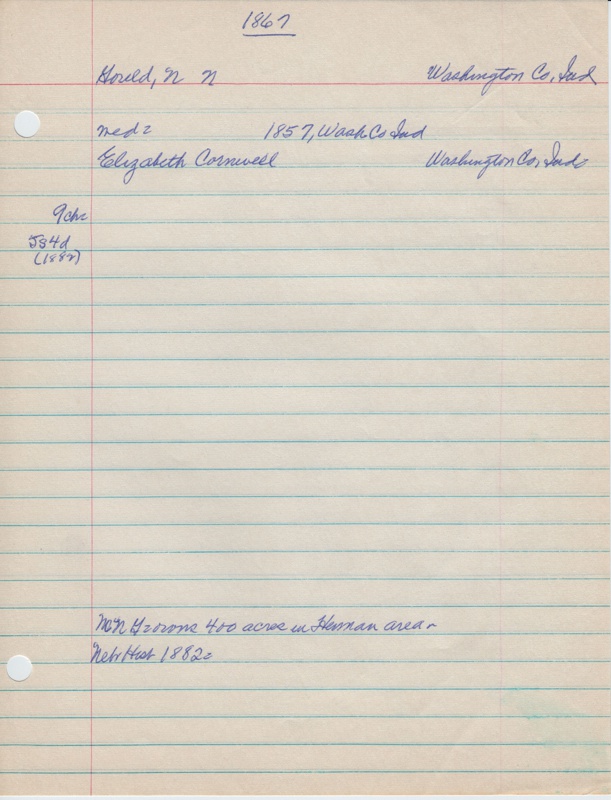 1867
Gould, N N Washington Co, Ind
med = 1857, Wash Co Ind
Elizabeth Cornwell Washington Co, Ind.
9ch=
5s4d
(1882)
400 acres in Herman area -
Nebr Hist 1882=